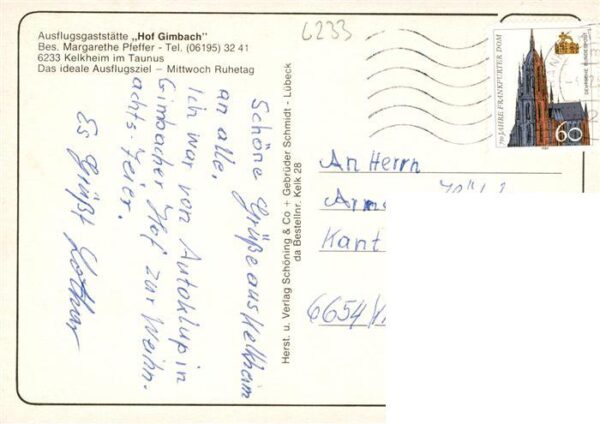 Ausflugsgaststätte „Hof Gimbach"
Bes. Margarethe Pfeffer - Tel. (06195) 32 41
6233 Kelkheim im Taunus
Das ideale Ausflugsziel – Mittwoch Ruhetag
6233
Schöne Grüße aus Kelkheim
an alle.
Ich war von Autoklup in
Gimbacher Hof zur Weihn.
achts-Feier.
Es grüßt Lothar
Herst. u. Verlag Schöning & Co + Gebrüder Schmidt - Lübeck
da Bestellnr. Kelk 28
750 JAHRE FRANKFURTER DOM
DEUTSCHE BUNDESPOST
60
An Herrn
Kant
6654